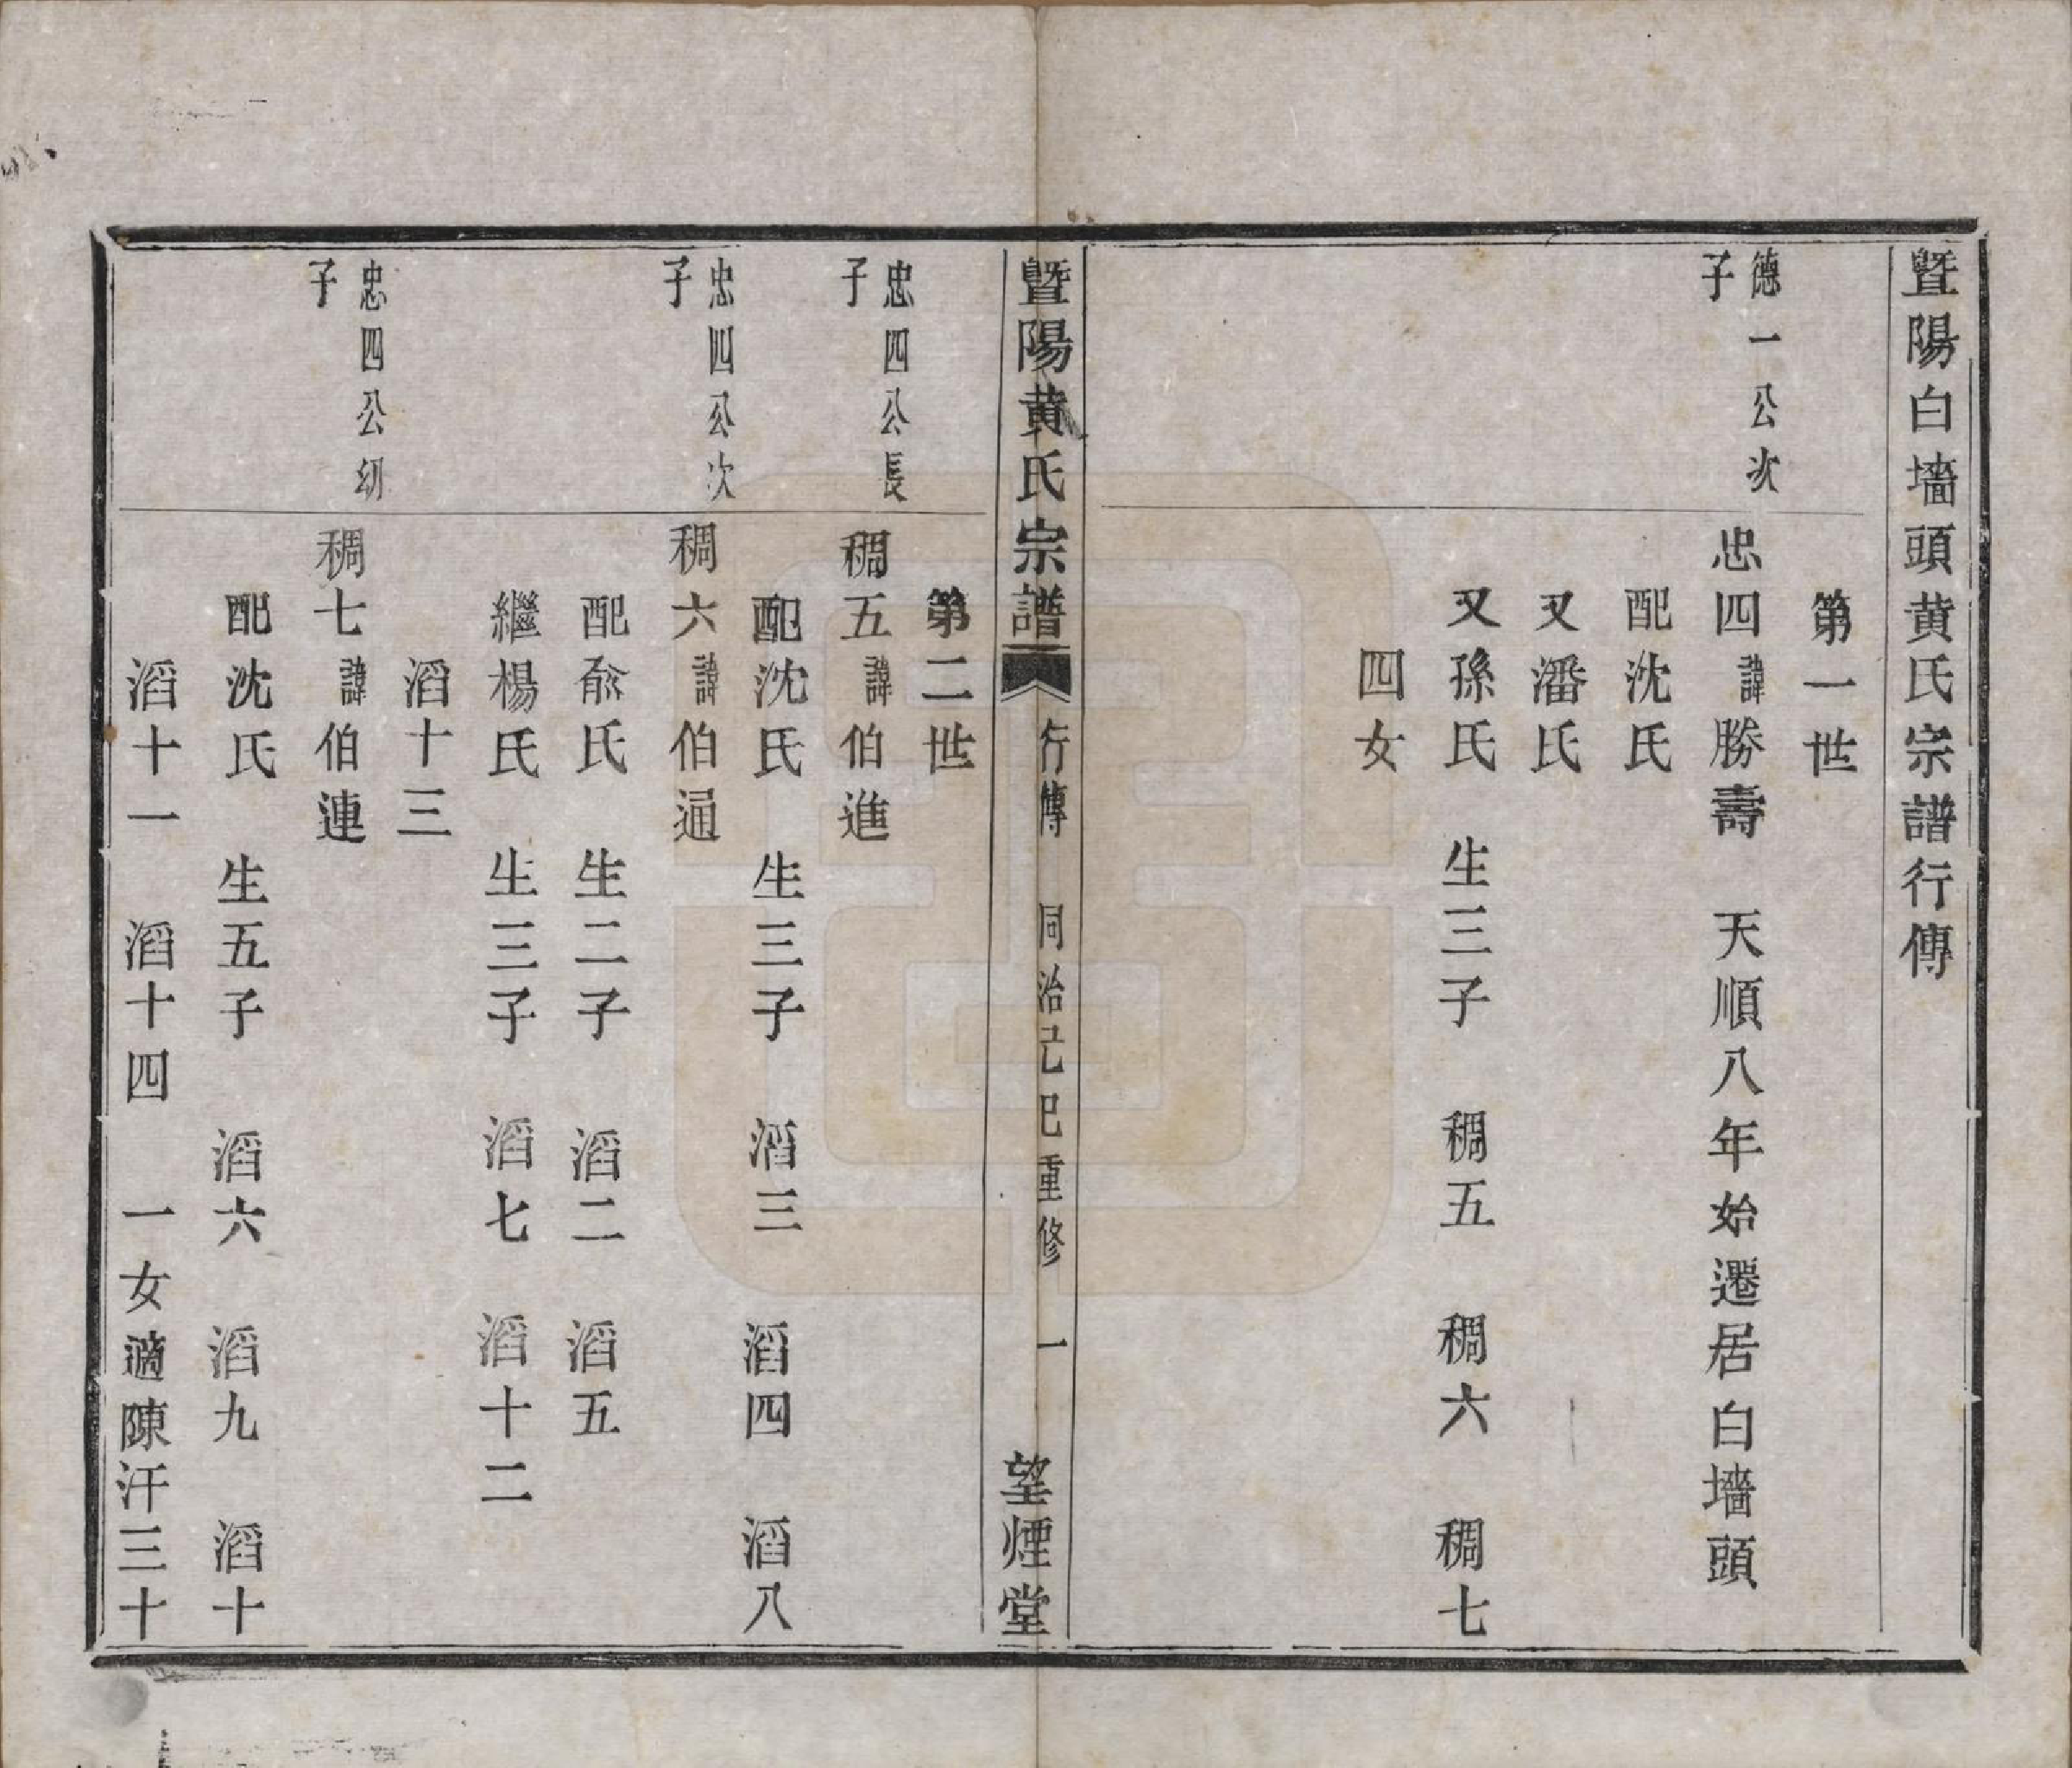 暨陽白墻頭黄氏宗譜行傳
第一世
德一公次子
忠四諱勝壽 天順八年始遷居白墻頭
配沈氏
又潘氏
又孫氏 生三子 稠五 稠六 稠七
四女
暨陽黄氏宗譜 行傳 同治己巳重修 一 望煙堂
第二世
忠四公長子
稠五諱伯進
配沈氏 生三子 滔三 滔四 滔八
忠四公次子
稠六諱伯通
配俞氏 生二子 滔二 滔五
繼楊氏 生三子 滔七 滔十二
滔十三
忠四公幼子
稠七諱伯連
配沈氏 生五子 滔六 滔九 滔十
滔十一 滔十四 一女適陳汗三十